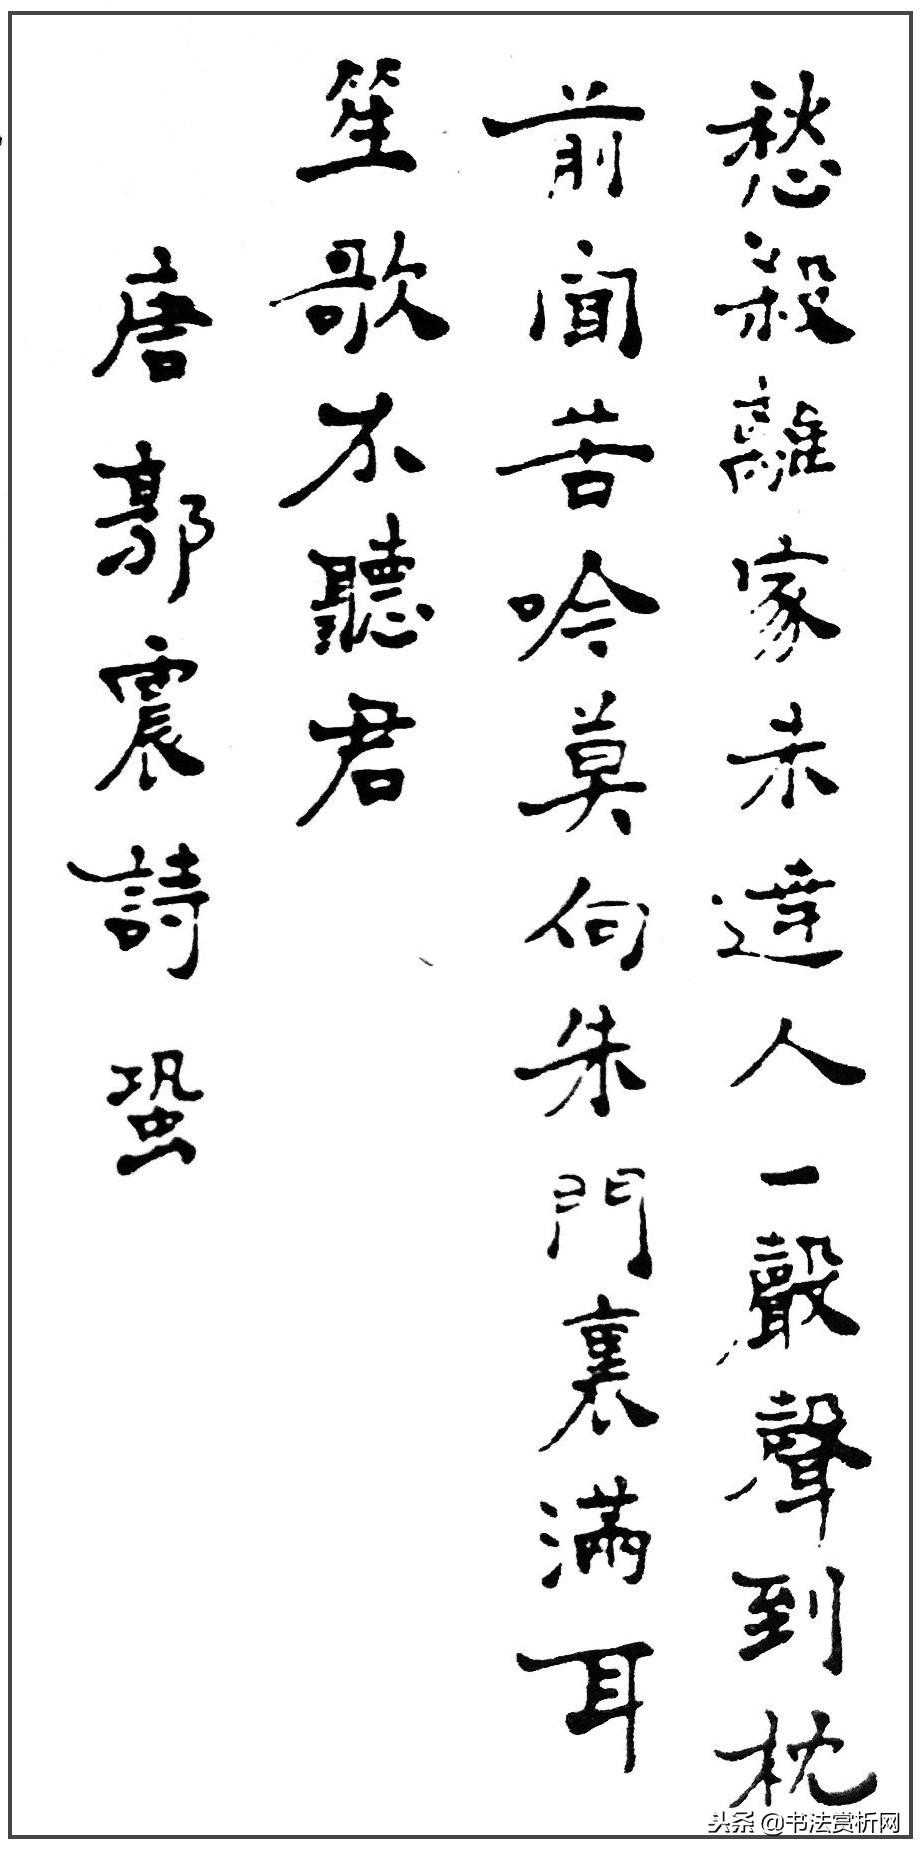 愁殺離家未達人一聲聲到枕
前聞苦吟莫向朱門裏滿耳
笙歌不聽君
唐郭震詩蛩
头条 @书法赏析网